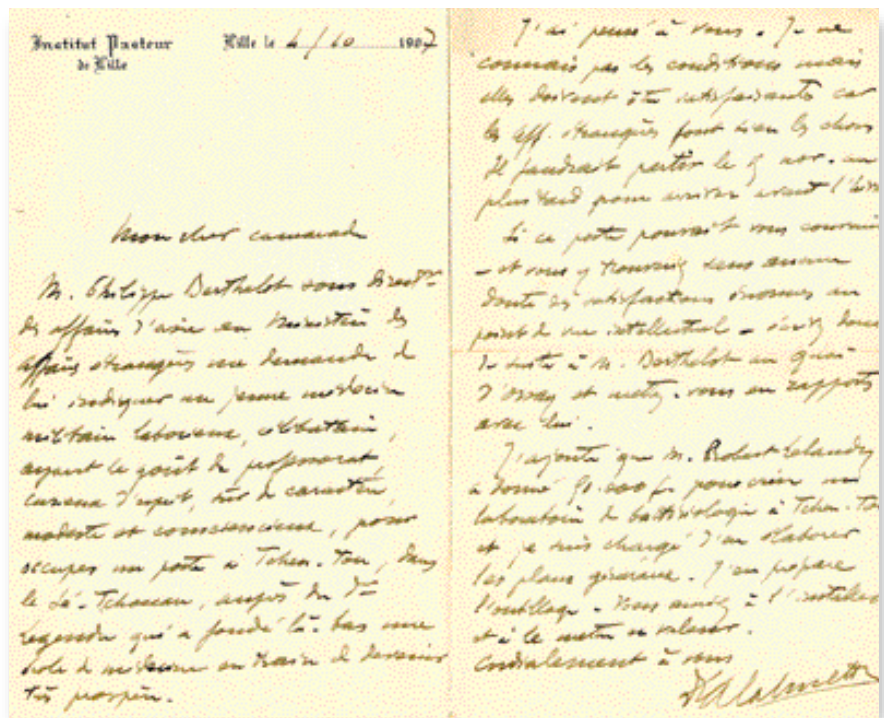 Institut Pasteur
de Lille
Lille le 4/10 1907
Mon cher camarade
M. Philippe Berthelot sous direct
des affaires d'Asie au Ministère des
affaires étrangères me demande de
lui indiquer un jeune médecin
militaire laborieux, célibataire,
ayant le goût du professorat,
curieux d'esprit, sûr de caractère,
modeste et consciencieux, pour
occuper un poste à Tchen-Tou, dans
le Sé-Tchouan, auprès du Dr
Legendre qui a fondé là-bas une
école de médecine en train de devenir
très prospère.
J'ai pensé à vous. Je ne
connais pas les conditions mais
elles doivent être satisfaisantes car
les aff. étrangères font bien les choses
Il faudrait partir le nov. au
plus tard pour arriver avant
Si ce poste pouvait vous convenir
- et vous y trouverez sans aucune
doute des satisfactions énormes au
point de vue intellectuel - écrivez donc
de suite à M. Berthelot au quai
d'Orsay et mettez-vous en rapports
avec lui.
J'ajoute que M. Robert Lebaudy
a donné 50.000 f. pour créer un
laboratoire de bactériologie à Tchen-Tou
et je suis chargé d'en élaborer
les plans. J'en prépare
l'outillage. Vous auriez à l'installer
et à le mettre en valeur.
Cordialement à vous
Dr A Calmette